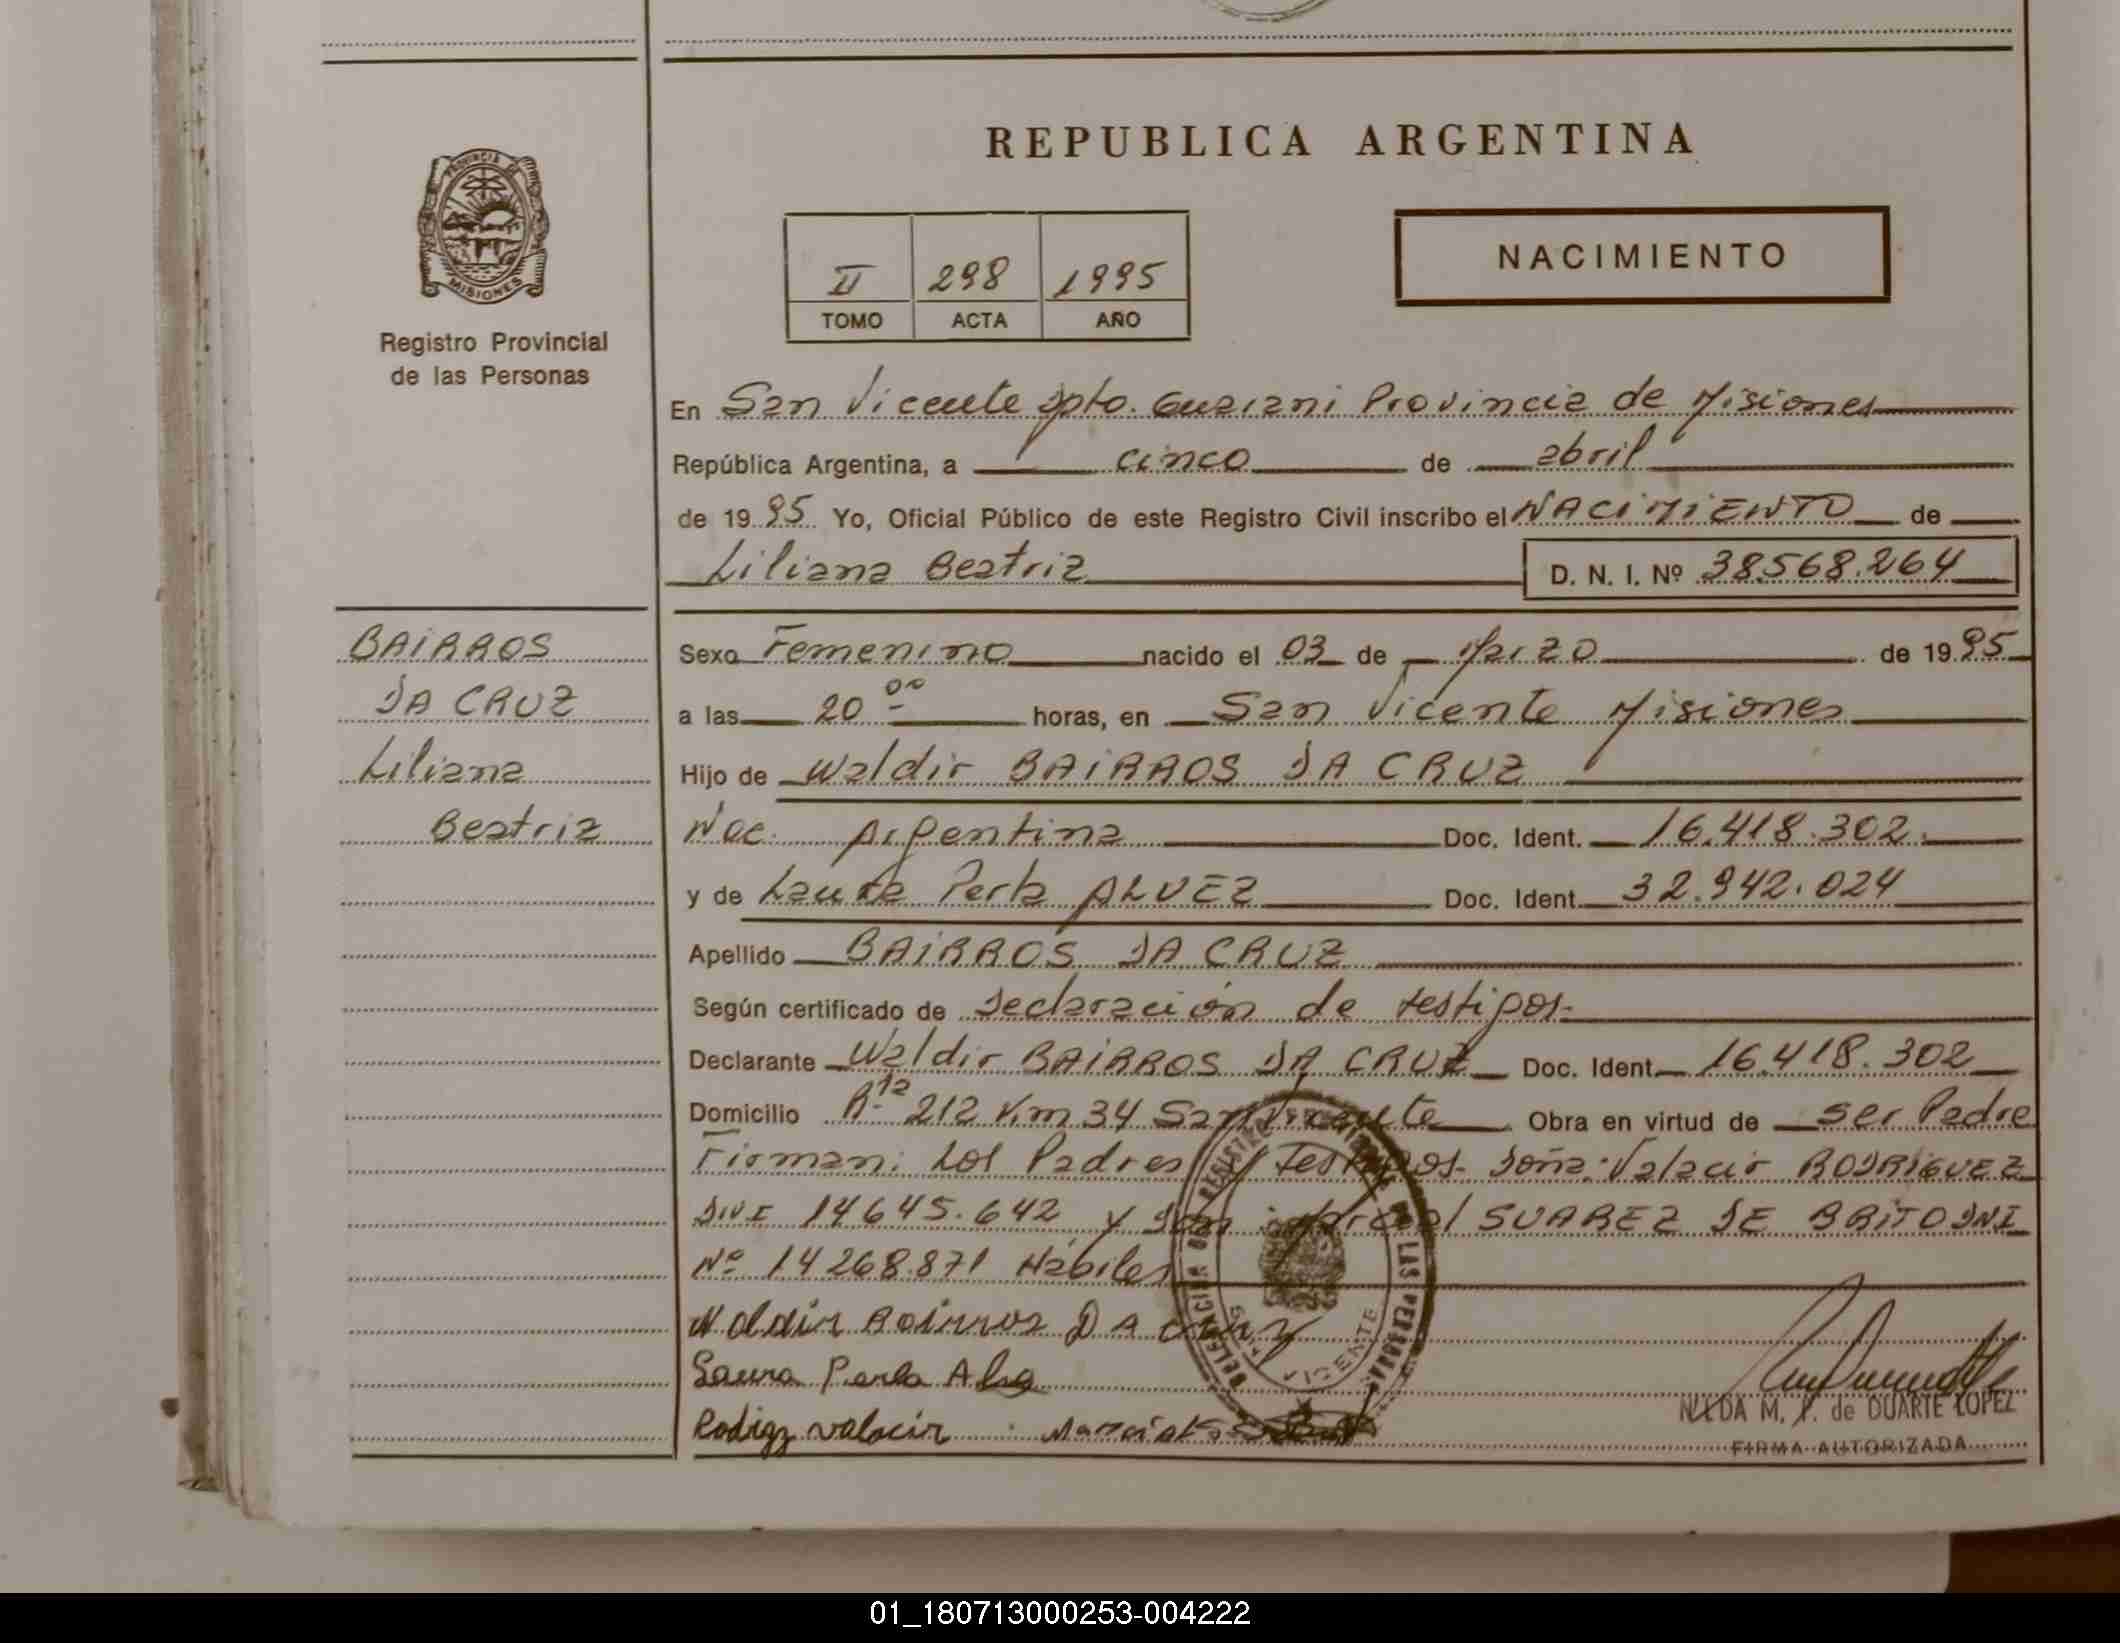 REPUBLICA ARGENTINA
PROVINCIA DE
MISIONES
Registro Provincial
de las Personas
II 298 1995
TOMO ACTA AÑO
NACIMIENTO
En San Vicente Dpto. Guarani Provincia de Misiones
República Argentina, a cinco de abril
de 1995 Yo, Oficial Público de este Registro Civil inscribo el NACIMIENTO de
Liliana Beatriz D. N. I. Nº 38.568.264
BAIRROS
DA CRUZ
Liliana
Beatriz
Sexo Femenino nacido el 03 de Marzo de 1995
a las 20 00 horas, en San Vicente Misiones
Hijo de Waldir BAIRROS DA CRUZ
Nac. Argentina Doc. Ident. 16.418.302.
y de Laura Perla ALVEZ Doc. Ident. 32.942.024
Apellido BAIRROS DA CRUZ
Según certificado de Declaración de testigos.
Declarante Waldir BAIRROS DA CRUZ Doc. Ident. 16.418.302
Domicilio 212 Km 34 San Vicente Obra en virtud de ser Padre
Firman: Los Padres y Testigos. Doña: Valacir RODRIGUEZ
DNI 14645.642 y Don: Marcial SUAREZ DE BRITO DNI
Nº 14268.871 Hábiles
Waldir Bairros DA Cruz
Laura Perla
Rodigz valacir Marcial
DELEGACION DE REGISTRO DE LAS PERSONAS
SAN VICENTE
NILDA M. de DUARTE LOPEZ
FIRMA AUTORIZADA
01_180713000253-004222